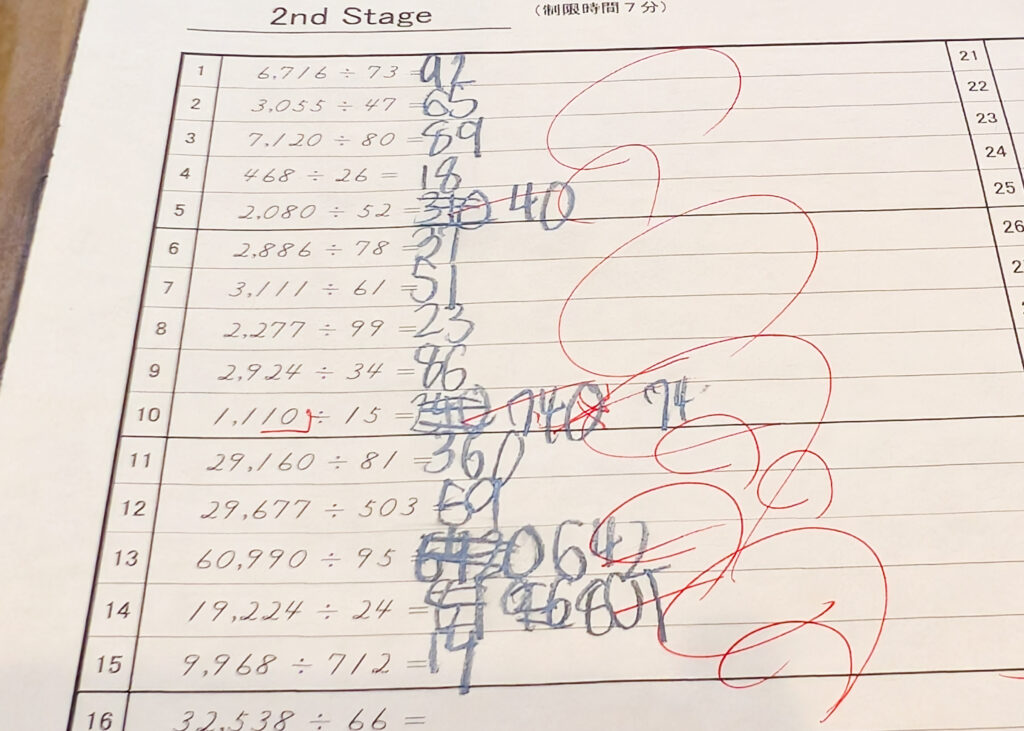 2nd Stage
(制限時間7分)
1 6,716 ÷ 73 = 92
2 3,055 ÷ 47 = 65
3 7,120 ÷ 80 = 89
4 468 ÷ 26 = 18
5 2,080 ÷ 52 = 40
6 2,886 ÷ 78 = 37
7 3,111 ÷ 61 = 51
8 2,277 ÷ 99 = 23
9 2,924 ÷ 34 = 86
10 1,110 ÷ 15 = 740 74
11 29,160 ÷ 81 = 360
12 29,677 ÷ 503 59
13 60,990 ÷ 95 642
14 19,224 ÷ 24 = 801
15 9,968 ÷ 712 = 14
16 32,538 ÷ 66 =
21
22
23
24
25
26